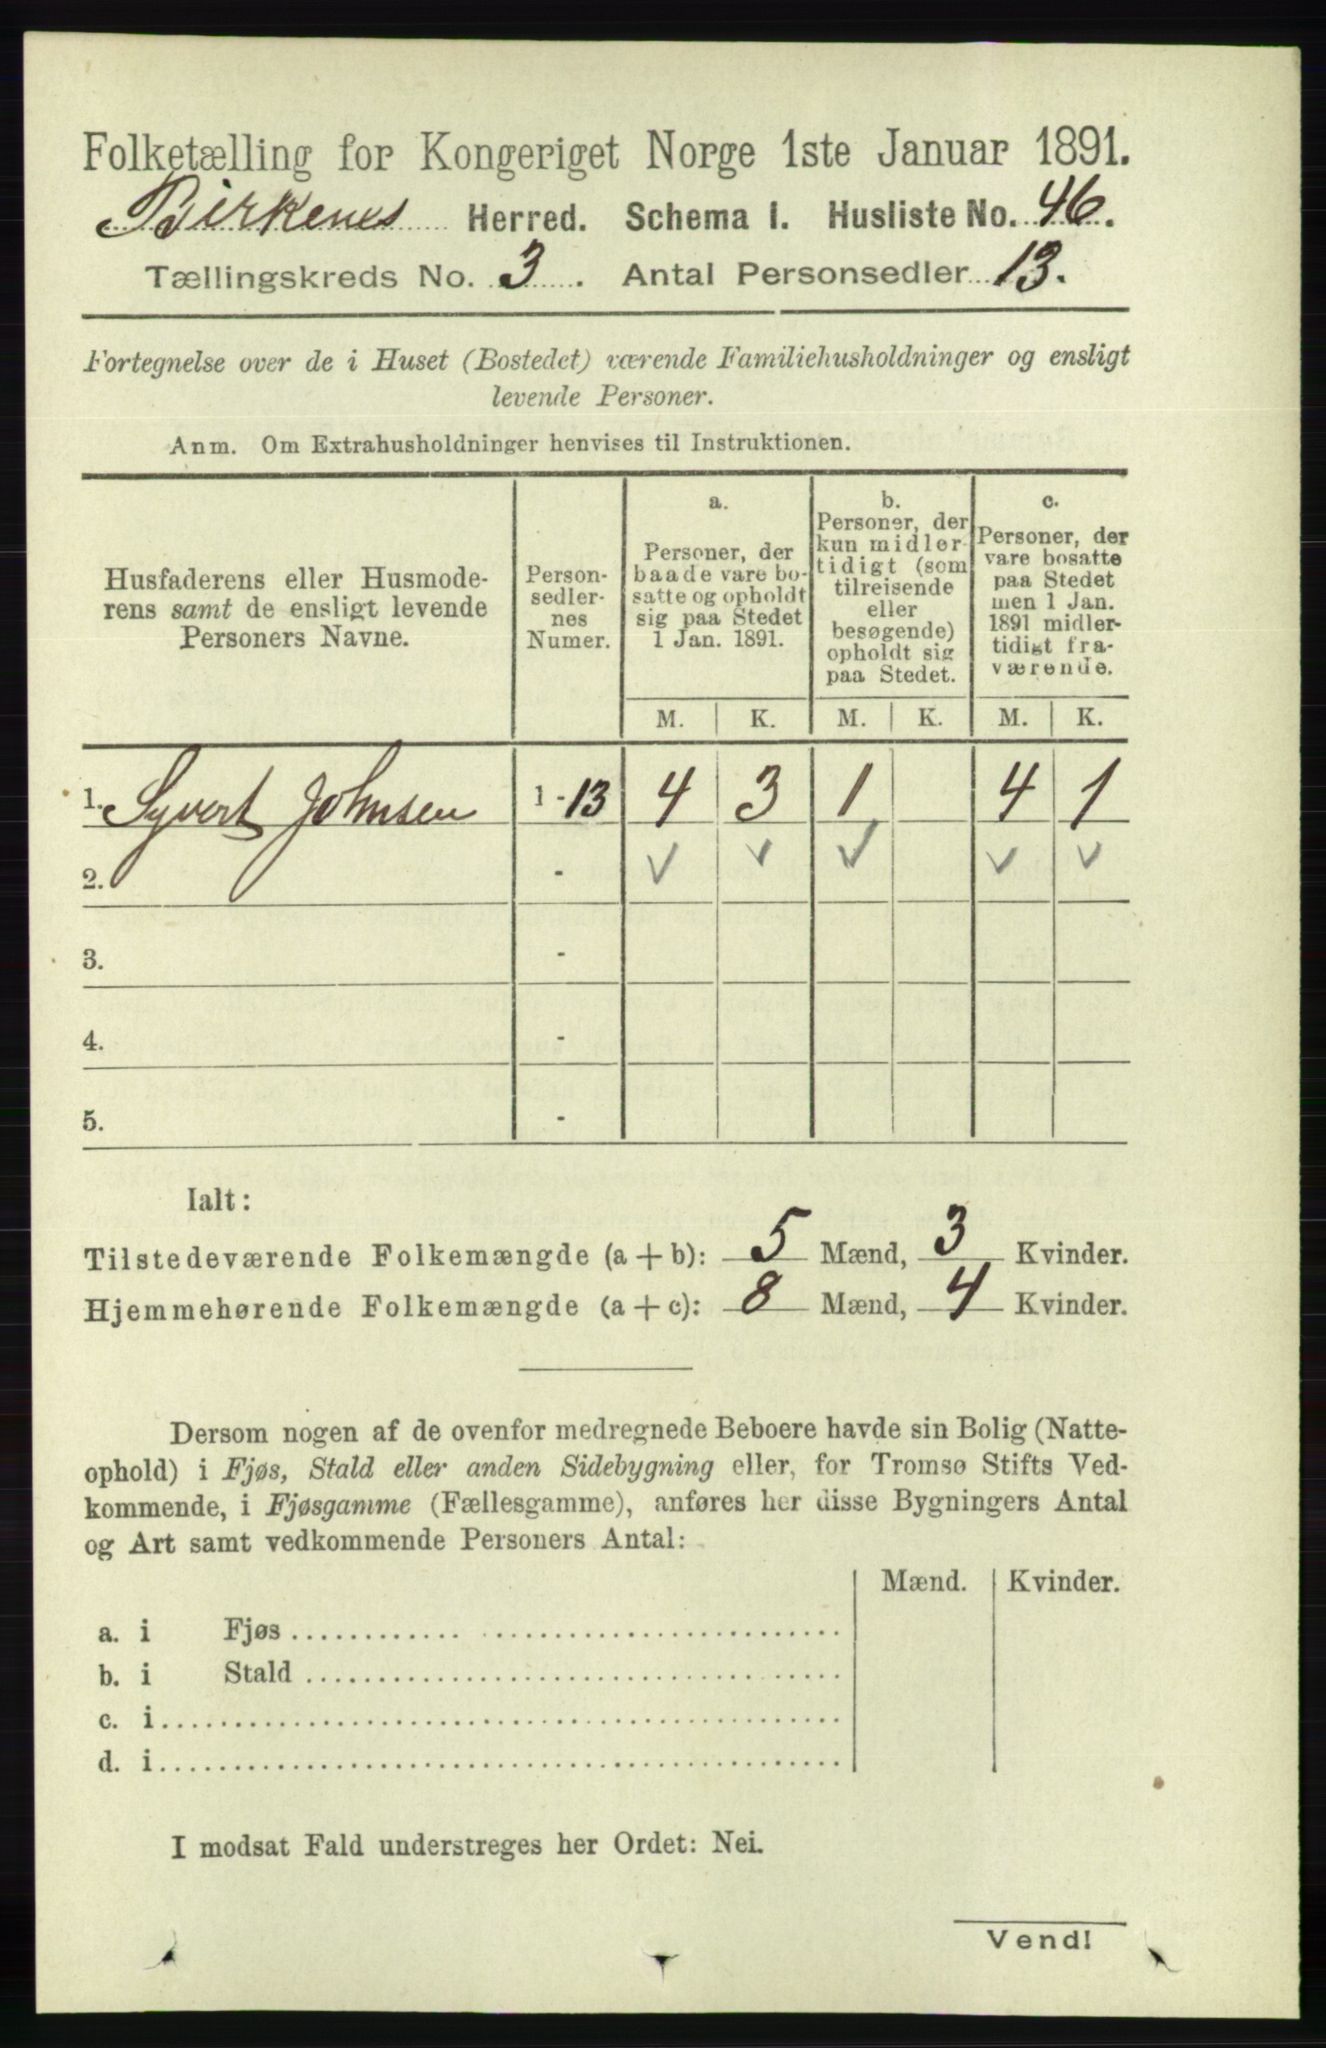 Folketælling for Kongeriget Norge 1ste Januar 1891.
Birkenes Herred. Schema I. Husliste No. 46.
Tællingskreds No. 3. Antal Personsedler 13.
Fortegnelse over de i Huset (Bostedet) værende Familiehusholdninger og ensligt
levende Personer.
Anm. Om Extrahusholdninger henvises til Instruktionen.
Husfaderens eller Husmode-
rens samt de ensligt levende
Personers Navne.
Person-
sedler-
nes
Numer.
a.
Personer, der
baade vare bo-
satte og opholdt
sig paa Stedet
1 Jan. 1891.
b.
Personer, der
kun midler-
tidigt (som
tilreisende
eller
besøgende)
opholdt sig
paa Stedet.
c.
Personer, der
vare bosatte
paa Stedet
men 1 Jan.
1891 midler-
tidigt fra-
værende.
M. K. M. K. M. K.
1. Syvert Johnsen 1 - 13 4 3 1 4 1
2. - ✓ ✓ ✓ ✓ ✓
3. -
4. -
5. -
Ialt:
Tilstedeværende Folkemængde (a + b): 5 Mænd, 3 Kvinder.
Hjemmehørende Folkemængde (a + c): 8 Mænd, 4 Kvinder.
Dersom nogen af de ovenfor medregnede Beboere havde sin Bolig (Natte-
ophold) i Fjøs, Stald eller anden Sidebygning eller, for Tromsø Stifts Ved-
kommende, i Fjøsgamme (Fællesgamme), anføres her disse Bygningers Antal
og Art samt vedkommende Personers Antal:
Mænd. Kvinder.
a. i Fjøs
b. i Stald
c. i
d. i
I modsat Fald understreges her Ordet: Nei.
Vend!